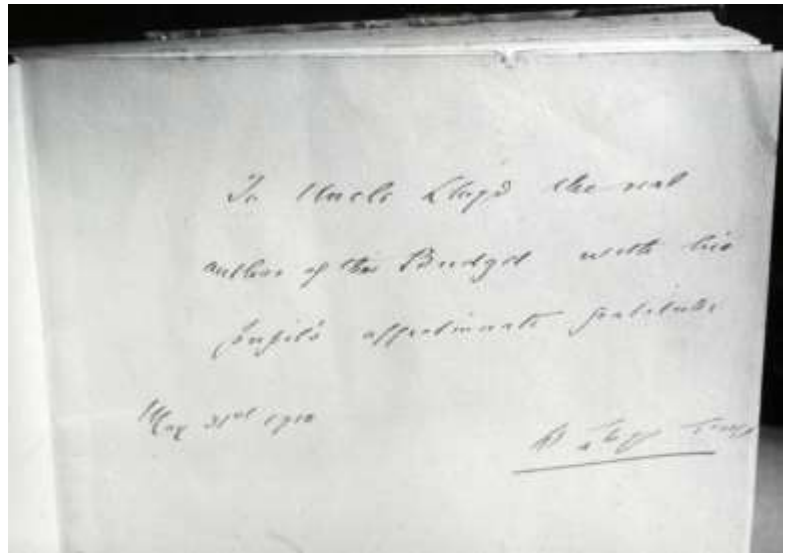 To Uncle Lloyd the real
author of this Budget with his
pupil's affectionate gratitude
May 31st 1910
D Lloyd George